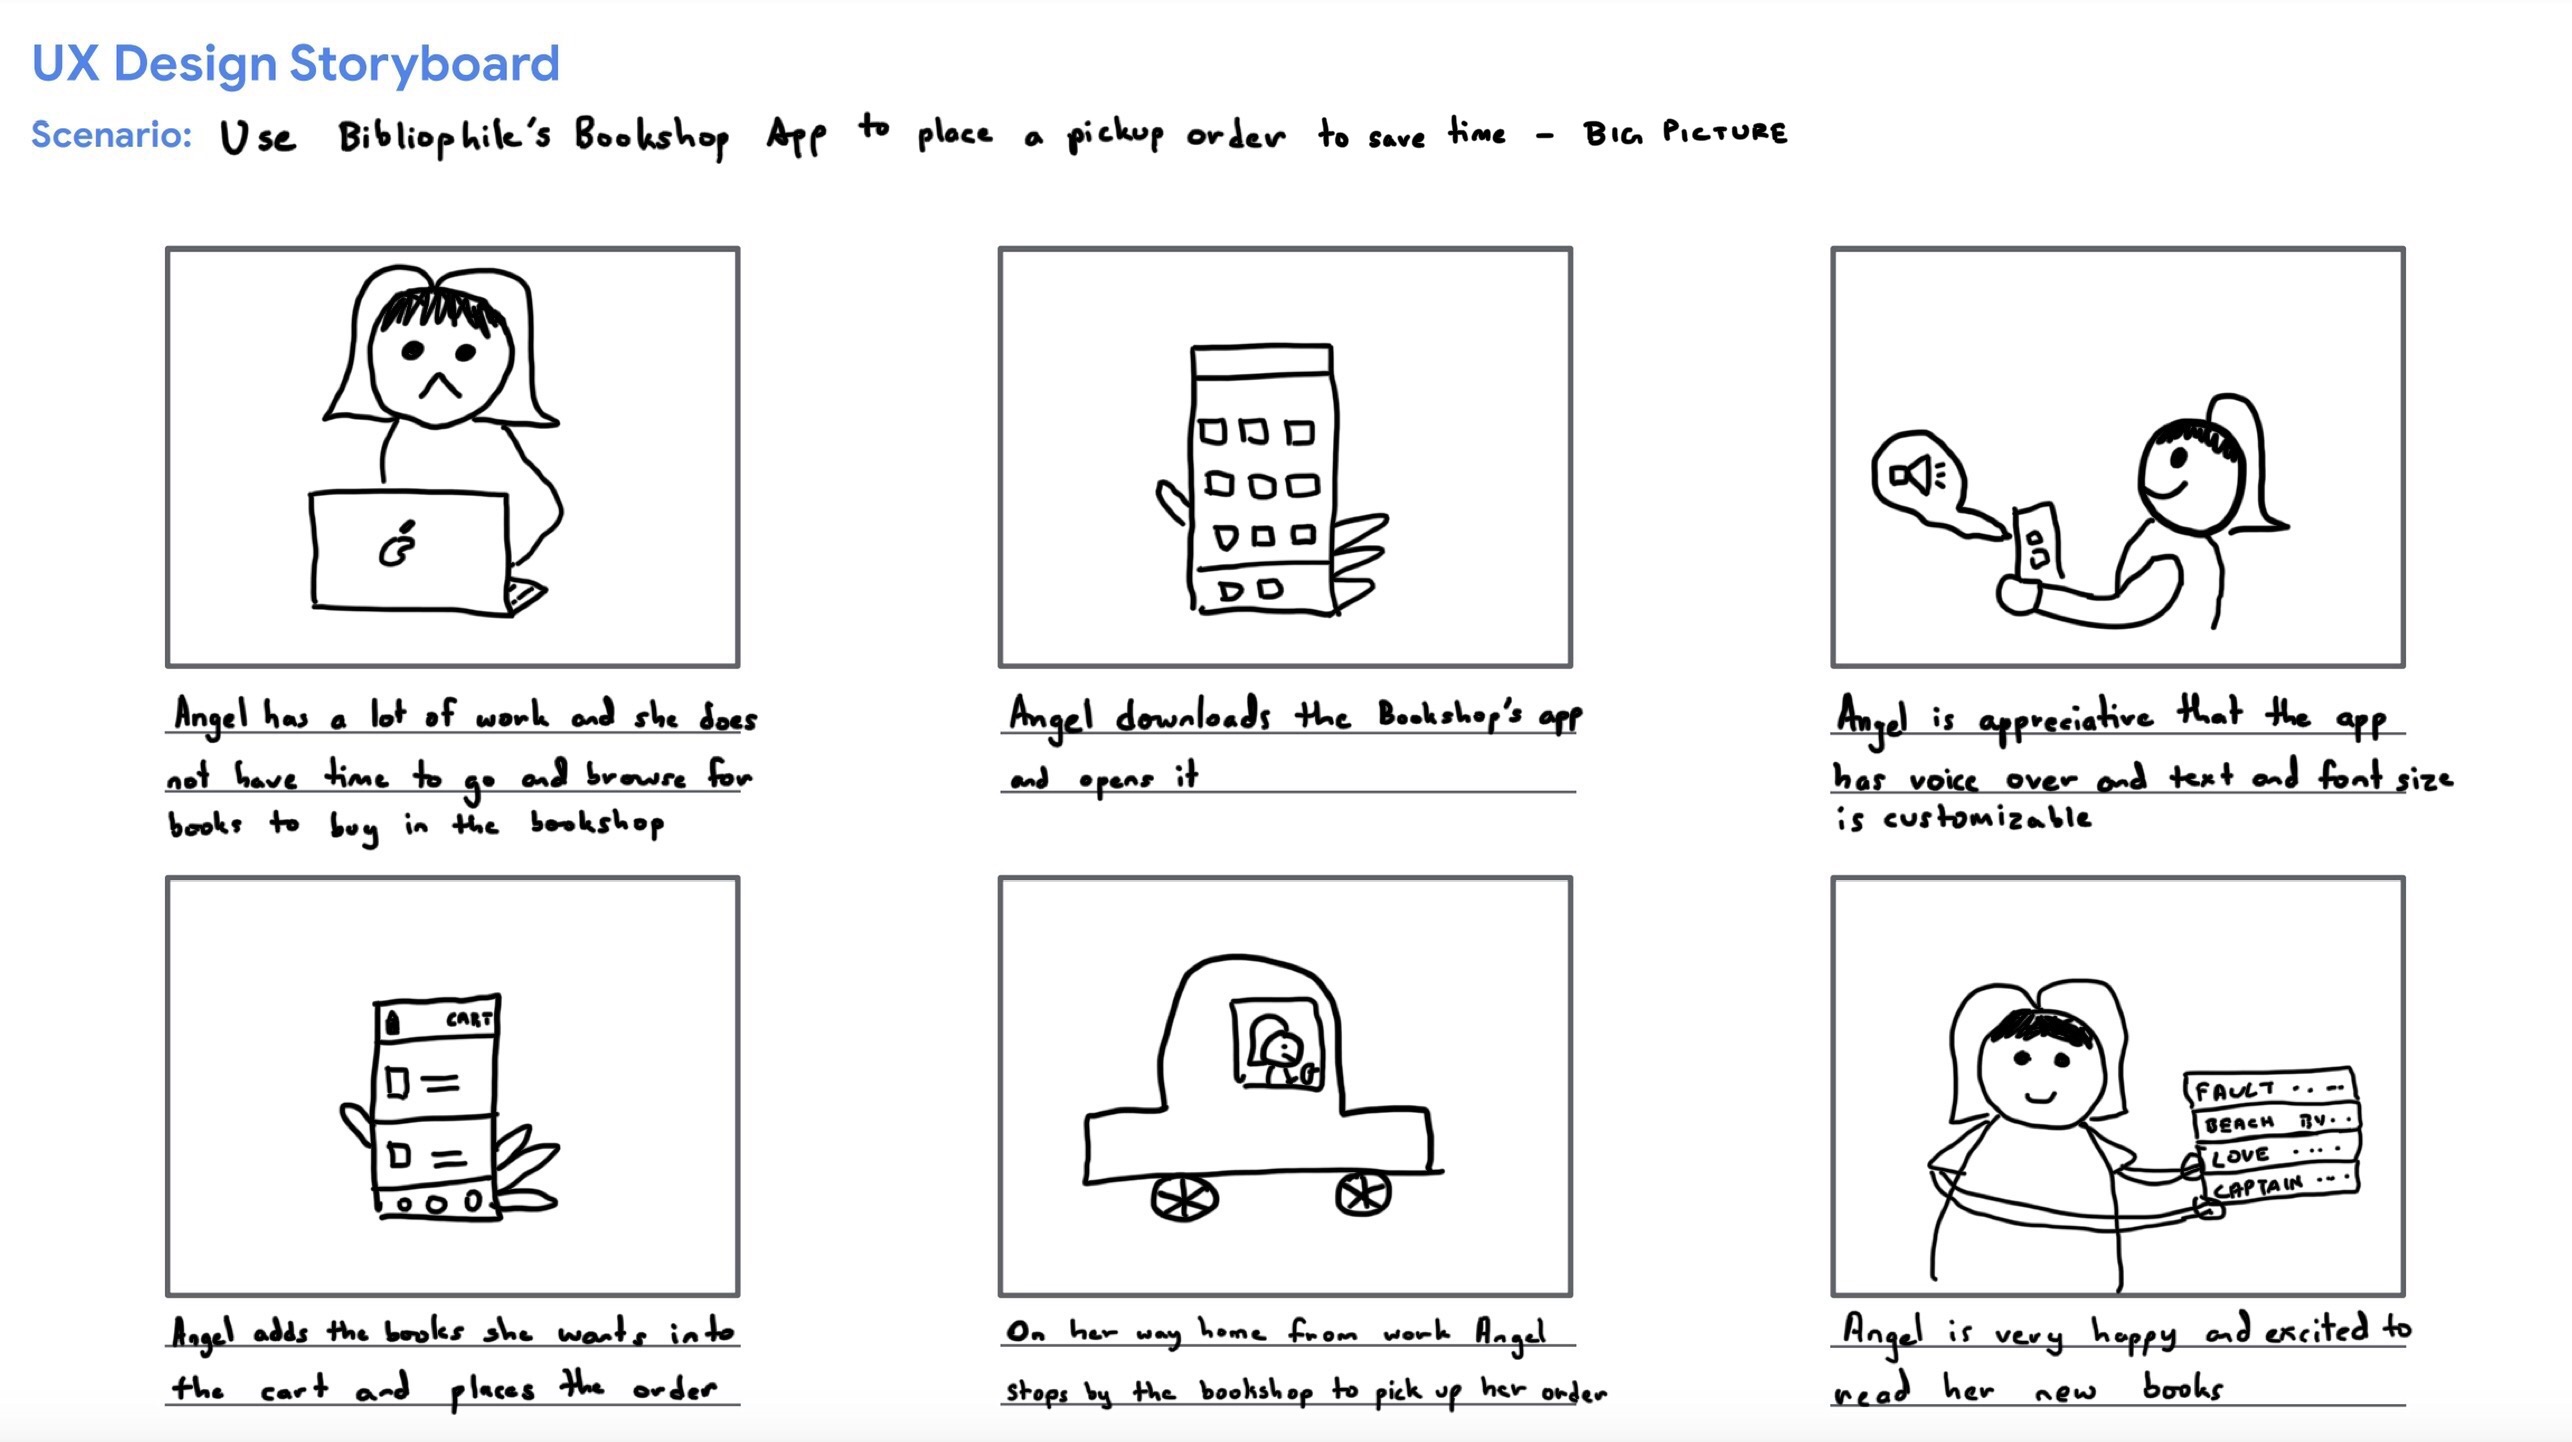 UX Design Storyboard
Scenario: Use Bibliophile's Bookshop App to place a pickup order to save time - BIG PICTURE
Angel has a lot of work and she does
not have time to go and browse for
books to buy in the bookshop
Angel downloads the Bookshop's app
and opens it
Angel is appreciative that the app
has voice over and text and font size
is customizable
CART
Angel adds the books she wants into
the cart and places the order
On her way home from work Angel
stops by the bookshop to pick up her order
FAULT .. --
BEACH BV..
LOVE ....
CAPTAIN --.
Angel is very happy and excited to
read her new books